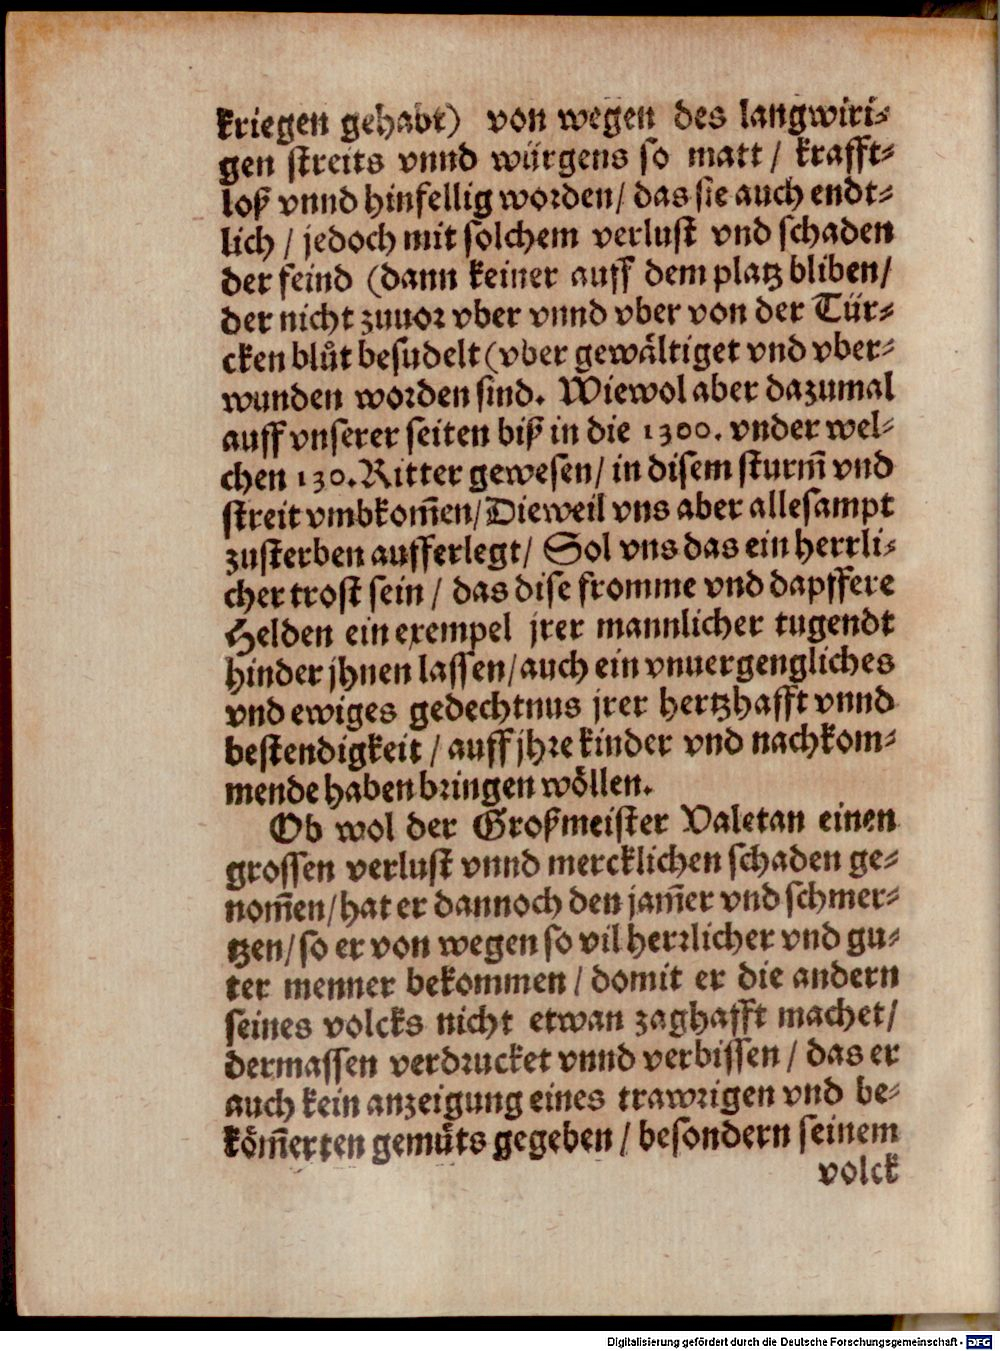 kriegen gehabt) von wegen des langwiri⸗
gen streits vnnd würgens so matt / krafft⸗
loß vnnd hinfellig worden / das sie auch endt⸗
lich / jedoch mit solchem verlust vnd schaden
der feind (dann keiner auff dem platz bliben /
der nicht zuuor vber vnnd vber von der Tür⸗
cken blůt besudelt (vber gewåltiget vnd vber⸗
wunden worden sind. Wiewol aber dazumal
auff vnserer seiten biß in die 1300. vnder wel⸗
chen 130. Ritter gewesen / in disem sturm̃ vnd
streit vmbkom̃en / Dieweil vns aber allesampt
zusterben aufferlegt / Sol vns das ein herrli⸗
cher trost sein / das dise fromme vnd dapffere
Helden ein exempel jrer mannlicher tugendt
hinder jhnen lassen / auch ein vnuergengliches
vnd ewiges gedechtnus jrer hertzhafft vnnd
bestendigkeit / auff jhre kinder vnd nachkom⸗
mende haben bringen wöllen.
Ob wol der Großmeister Valetan einen
grossen verlust vnnd mercklichen schaden ge⸗
nom̃en / hat er dannoch den jam̃er vnd schmer⸗
tzen / so er von wegen so vil herrlicher vnd gu⸗
ter menner bekommen / domit er die andern
seines volcks nicht etwan zaghafft machet /
dermassen verdrucket vnnd verbissen / das er
auch kein anzeigung eines trawrigen vnd be⸗
köm̃erten gemůts gegeben / besondern seinem
volck
Digitalisierung gefördert durch die Deutsche Forschungsgemeinschaft - DFG